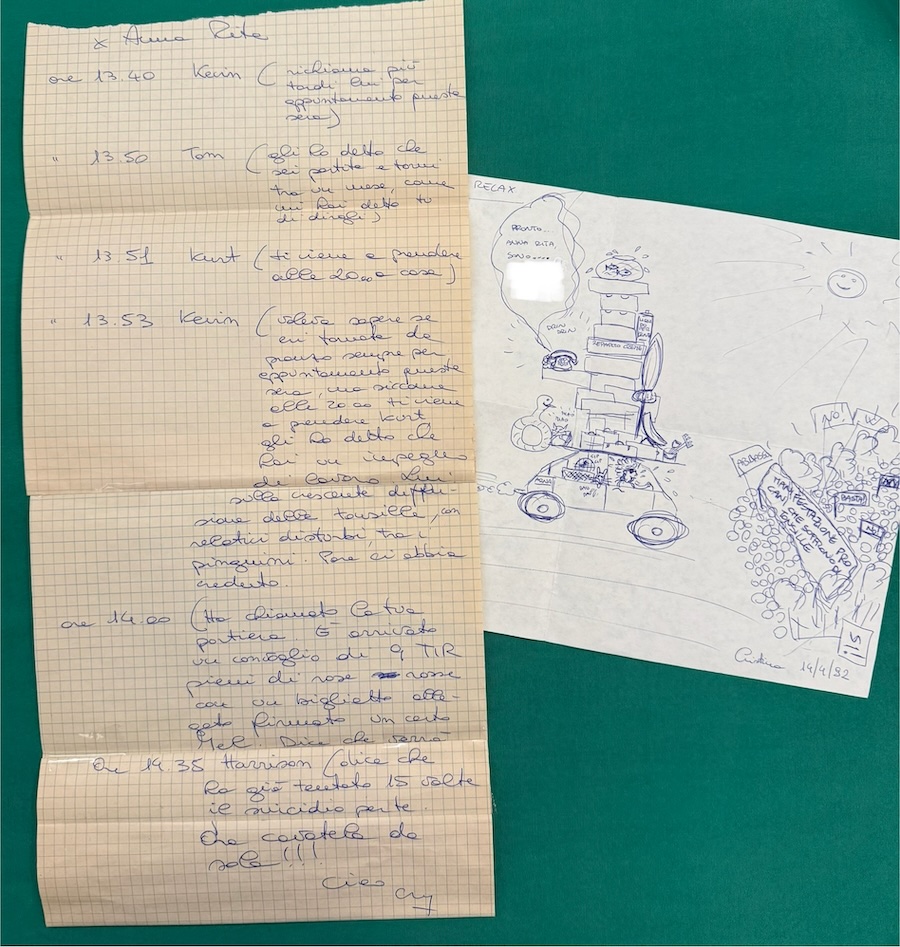 x Anna Rita
ore 13.40 Kevin (richiama più
tardi lui per
appuntamento questa
sera)
" 13.50 Tom (gli ho detto che
sei partita e torni
tra un mese, come
mi hai detto tu
di dirgli)
" 13.51 Kurt (ti viene a prendere
alle 20.00 a casa)
" 13.53 Kevin (voleva sapere se
eri tornata da
pranzo sempre per
appuntamento questa
sera, ma siccome
alle 20.00 ti viene
a prendere Kurt
gli ho detto che
hai un impegno
di lavoro
sulla crescente diffu-
sione delle tonsille, con
relativi disturbi, tra i
pinguini. Pare ci abbia
creduto.
ore 14.00 (Ha chiamato la tua
portiera. È arrivato
un convoglio di 9 TIR
pieni di rose rosse
con un biglietto alle-
gato firmato un certo
Mel. Dice che verrà
Ore 14.35 Harrison (dice che
ha già tentato 15 volte
il suicidio per te.
Ora cavatela da
sola!!!
Ciao
Cry
RELAX
PRONTO...
ANNA RITA,
SONO.....
DRIN
DRIN
REPARTO
NO!
W
ABBASSO
MANIFESTAZIONE PRO
CANI CHE SOFFRONO DI
TONSILLE
BASTA!
NO!
SI!
Cristina 14/4/92